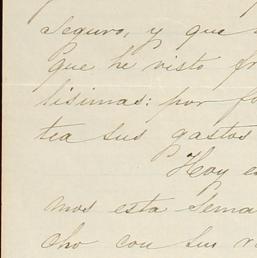 seguro, y que
que he visto fr
lisimas: por fo
tea sus gastos
Hoy es
mos esta sema
Oho con sus